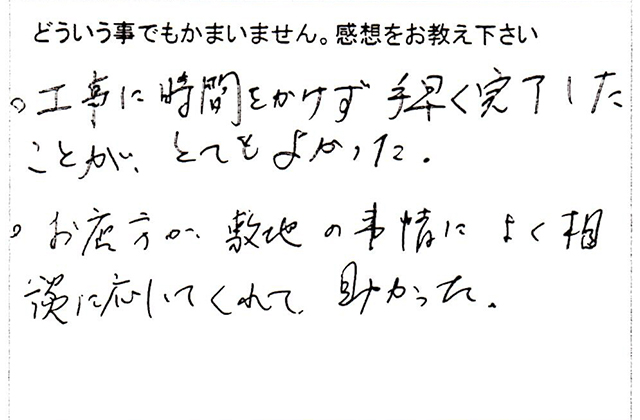 どういう事でもかまいません。感想をお教え下さい
○工事に時間をかけず手早く完了した
ことが、とてもよかった。
○お店方が、敷地の事情によく相
談に応じてくれて、助かった。